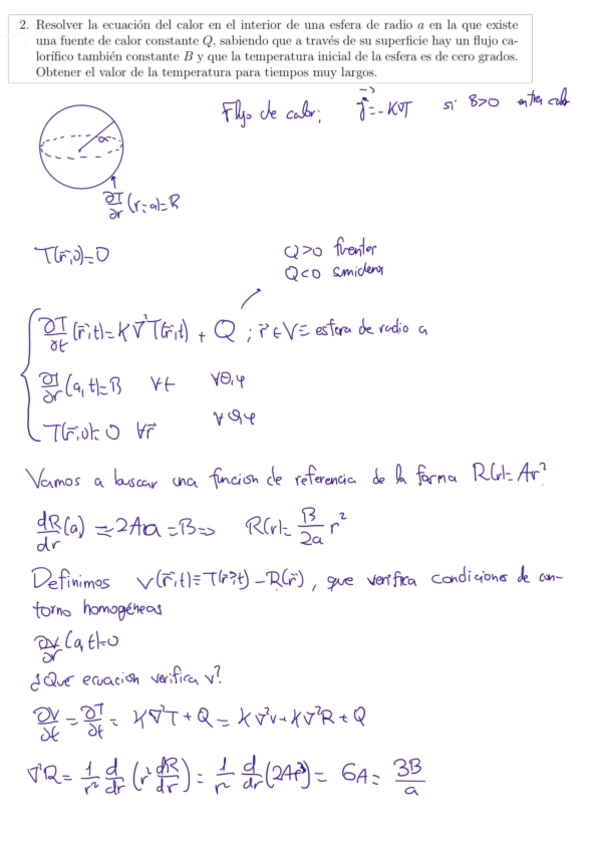 2. Resolver la ecuación del calor en el interior de una esfera de radio a en la que existe
una fuente de calor constante Q, sabiendo que a través de su superficie hay un flujo ca-
lorífico también constante B y que la temperatura inicial de la esfera es de cero grados.
Obtener el valor de la temperatura para tiempos muy largos.
Flujo de calor; j⃗=-K∇T si B>0 entra calor
a
∂T/∂r (r=a)=B
T(r̄,0)=0
Q>0 fuentes
Q<0 sumideros
∂T/∂t (r̄,t)=K∇²T(r̄,t) + Q ; r̄∈V≡ esfera de radio a
∂T/∂r (a,t)=B ∀t ∀θ,φ
T(r̄,0)=0 ∀r̄ ∀θ,φ
Vamos a buscar una funcion de referencia de la forma R(r)=Ar²
dR/dr (a) = 2Aa = B ⇒ R(r)= B/2a r²
Definimos v(r̄,t)≡T(r̄,t)-R(r̄), que verifica condiciones de con-
torno homogéneas
∂v/∂r (a,t)=0
¿Que ecuacion verifica v?
∂v/∂t = ∂T/∂t = K∇²T + Q = K∇²v + K∇²R + Q
∇²R = 1/r² d/dr (r² dR/dr) = 1/r² d/dr (2Ar³) = 6A = 3B/a